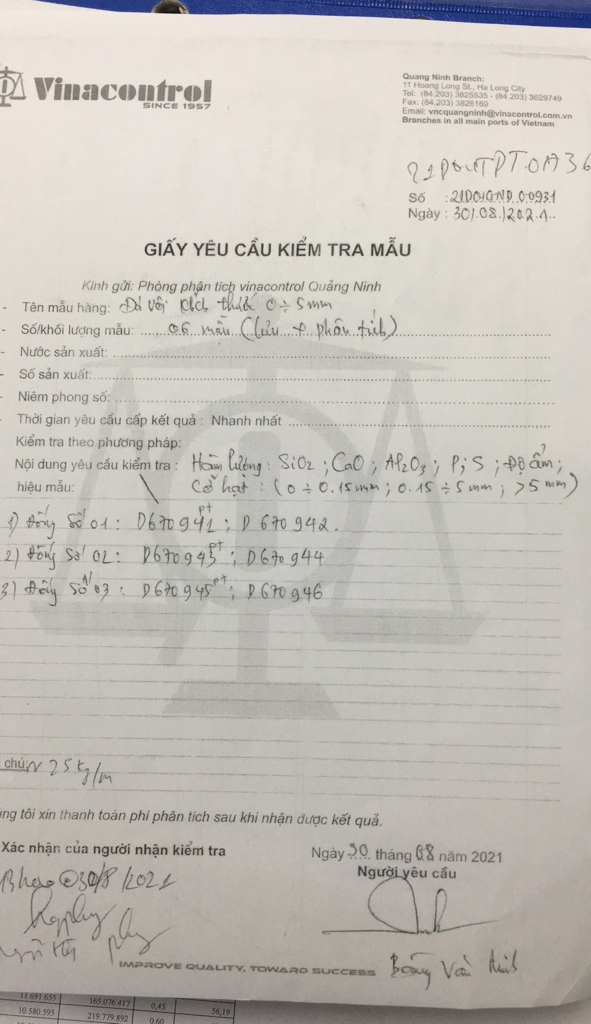 Vinacontrol
SINCE 1957
Quang Ninh Branch:
11 Hoang Long St., Ha Long City
Tel: (84.203) 3825535 - (84.203) 3629749
Fax: (84.203) 3826169
Email: vncquangninh@vinacontrol.com.vn
Branches in all main ports of Vietnam
Số :
Ngày : 30/.08./2021..
GIẤY YÊU CẦU KIỂM TRA MẪU
Kính gửi: Phòng phân tích vinacontrol Quảng Ninh
- Tên mẫu hàng: Đá vôi kích thước 0 ÷ 5mm
- Số/khối lượng mẫu: 06 mẫu (lưu + phân tích)
- Nước sản xuất:
- Số sản xuất:
- Niêm phong số:
- Thời gian yêu cầu cấp kết quả : Nhanh nhất
Kiểm tra theo phương pháp:
Nội dung yêu cầu kiểm tra : Hàm lượng: SiO2 ; CaO ; Al2O3 ; P ; S ; Độ ẩm ;
hiệu mẫu: Cỡ hạt : (0 ÷ 0.15mm ; 0.15 ÷ 5mm ; >5mm)
1) Đống Số 01 : D670941 pt ; D 670942.
2) Đống Số 02 : D670943 pt ; D670944
3) Đống Số 03 : D670945 pt ; D670946
chú: ~ 25kg/m
ng tôi xin thanh toán phí phân tích sau khi nhận được kết quả.
Xác nhận của người nhận kiểm tra
Ngày 30. tháng 08 năm 2021
Người yêu cầu
@30/8/2021
IMPROVE QUALITY, TOWARD SUCCESS
11 691 655 165.076.417 0,45 56,19
10 580 595 219.779.892 0,60